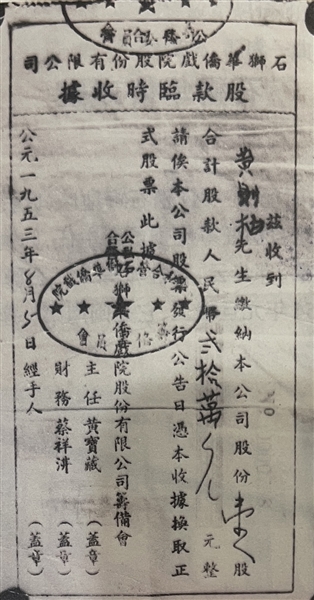 石獅華僑戲院股份有限公司
股款臨時收據
茲收到
黃則柚先生繳納本公司股份 股
合計股款人民幣弍拾萬元整
請俟本公司股票發行公告日憑本收據換取正
式股票 此據
公私合營石獅華僑戲院股份有限公司籌備會
主任 黃寶藏 (蓋章)
財務 蔡祥 (蓋章)
公元一九五三年8月5日 經手人 (蓋章)